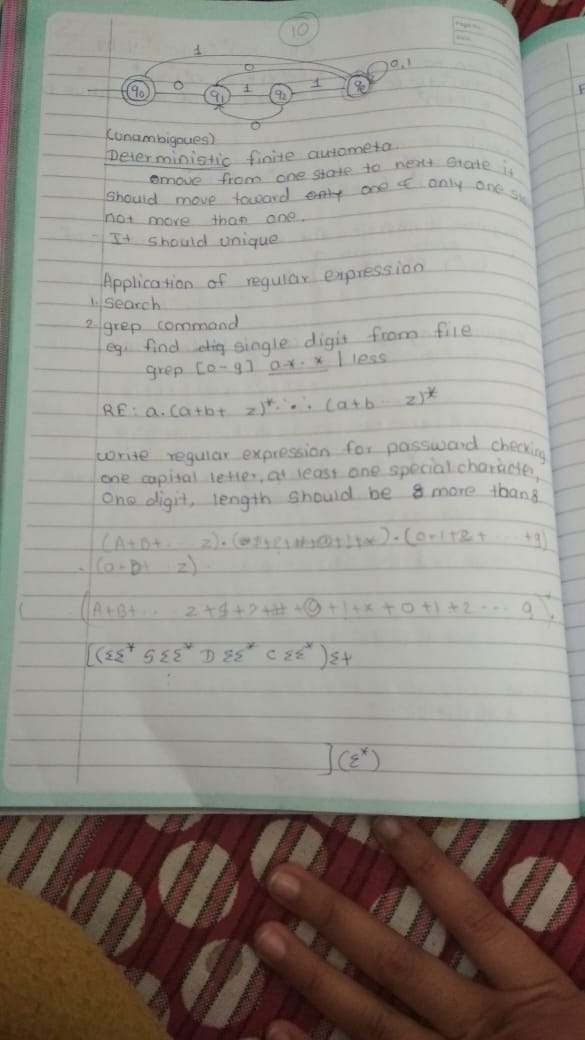 10
Page No.:
Date:
1
0
0,1
q0 0 q1 1 q2 1
0
(unambigoues)
Deterministic finite autometa.
move from one state to next state it
should move toward only one & only one
not more than one.
- It should unique
Application of regular expression
1. search
2. grep command
eg. find dig single digit from file
grep [0-9] a*.* | less
RE: a.(a+b+ z)*.(a+b.. z)*
write regular expression for passward checking
one capital letter, at least one special character,
One digit, length should be 8 more than 8.
(A+B+... z).
(0+1+2+ ... +9)
.(a+B+ z)
(A+B+.. z+$+2+#+@+!+*+0+1+2...9)
[(ΣΣ* S ΣΣ* D ΣΣ* C ΣΣ*)Σ+
](Σ*)